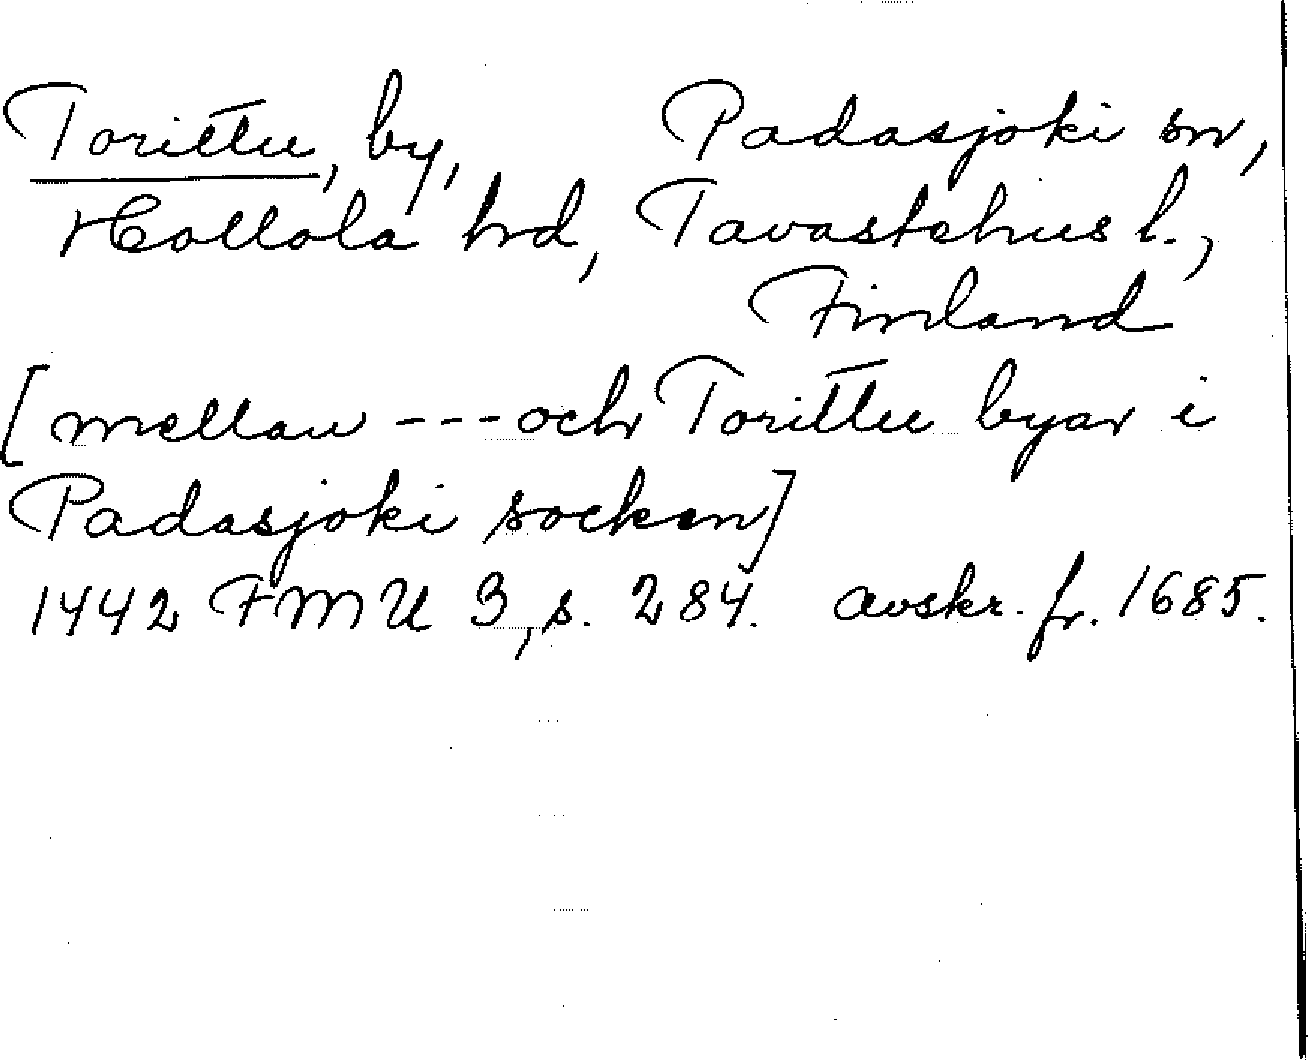 Torittu, by, Padasjoki sn,
Hollola hrd, Tavastehus l.,
Finland
[mellan --- och Torittu byar i
Padasjoki socken]
1442 FMU 3, s. 284. avskr. fr. 1685.